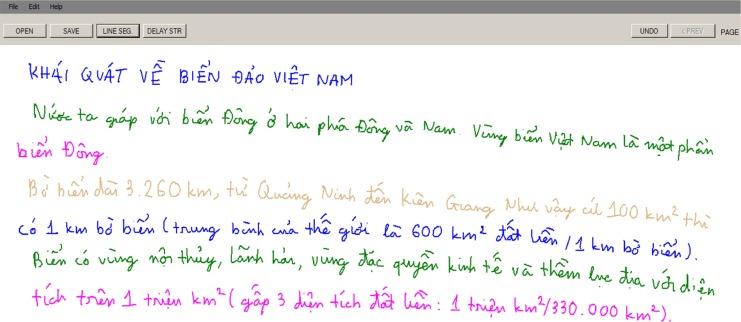 File Edit Help
OPEN SAVE LINE SEG. DELAY STR UNDO < PREV PAGE
KHÁI QUÁT VỀ BIỂN ĐẢO VIỆT NAM
Nước ta giáp với biển Đông ở hai phía Đông và Nam. Vùng biển Việt Nam là một phần
biển Đông
Bờ biển dài 3.260 km, từ Quảng Ninh đến Kiên Giang Như vậy cứ 100 km² thì
có 1 km bờ biển (trung bình của thế giới là 600 km² đất liền / 1 km bờ biển).
Biển có vùng nội thủy, lãnh hải, vùng đặc quyền kinh tế và thềm lục địa với diện
tích trên 1 triệu km² (gấp 3 diện tích đất liền: 1 triệu km²/330.000 km²).